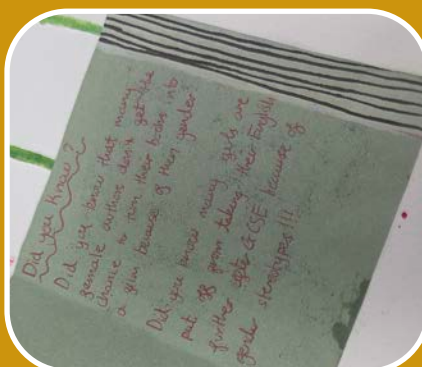 Did you know?
Did you know that many
female authors don't get the
chance to turn their books into
a film because of their gender?
Did you know many girls are
put off from taking their English
further after GCSE because of
gender stereotypes!!!